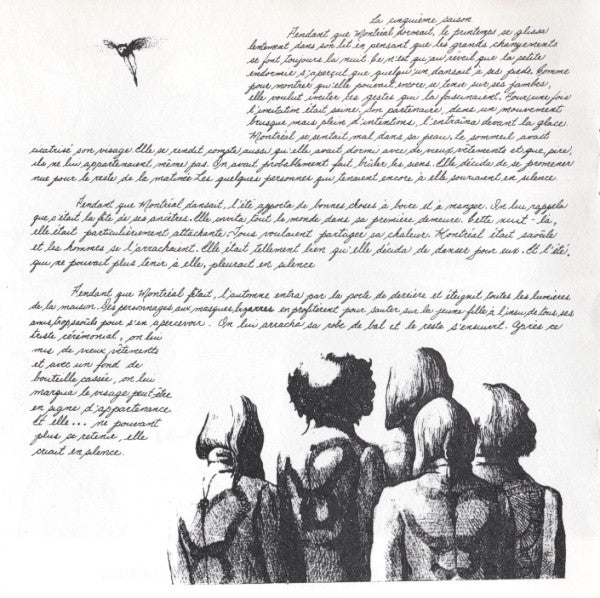 la cinquième saison
Pendant que Montréal dormait, le printemps se glissa
lentement dans son lit en pensant que les grands changements
se font toujours la nuit. Ce n'est qu'au réveil que la petite
endormie s'aperçut que quelqu'un dansait à ses pieds. Comme
pour montrer qu'elle pouvait encore se tenir sur ses jambes,
elle voulut imiter les gestes qui la fascinaient. Pour une fois
l'imitation était jeune. Son partenaire, dans un mouvement
brusque mais plein d'intentions, l'entraîna devant la glace.
Montréal se sentait mal dans sa peau, le sommeil avait
cicatrisé son visage. Elle se rendit compte aussi qu'elle avait dormi avec de vieux vêtements et que, pire,
ils ne lui appartenaient même pas. On avait probablement fait brûler les siens. Elle décida de se promener
nue pour le reste de la matinée. Les quelques personnes qui tenaient encore à elle souriaient en silence
Pendant que Montréal dansait, l'été apporta de bonnes choses à boire et à manger. On lui rappela
que c'était la fête de ses ancêtres. Elle invita tout le monde dans sa première demeure. Cette nuit-là,
elle était particulièrement attachante. Tous voulaient partager sa chaleur. Montréal était saoûle
et les hommes se l'arrachaient. Elle était tellement bien qu'elle décida de danser pour eux. Et l'été,
qui ne pouvait plus tenir à elle, pleurait en silence
Pendant que Montréal fêtait, l'automne entra par la porte de derrière et éteignit toutes les lumières
de la maison. Des personnages aux masques bizarres en profitèrent pour sauter sur la jeune fille à l'insu de tous ses
amis trop saoûls pour s'en apercevoir. On lui arracha sa robe de bal et le reste s'ensuivit. Après ce
triste cérémonial, on lui
mis de vieux vêtements
et avec un fond de
bouteille cassée, on lui
marqua le visage, peut-être
en signe d'appartenance
Et elle... ne pouvant
plus se retenir, elle
criait en silence.